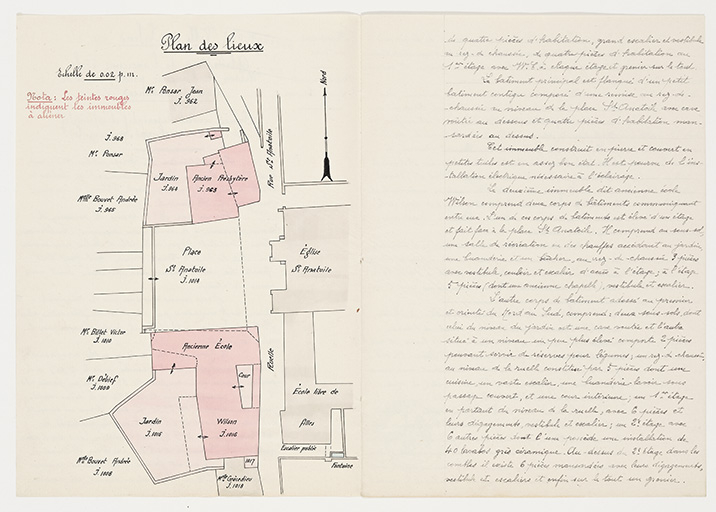 Plan des lieux
Echelle de 0.02 p. m.
Nota: Les teintes rouges
indiquent les immeubles
à aliéner
Nord
Mr Ponsar Jean
J. 962
J. 963
Mr Ponsar
Mme Bouvet Andrée
J. 965
Jardin
J. 964
Ancien Presbytère
J. 963
Rue St Anatoile
Place
St Anatoile
J. 1014
Église
St Anatoile
Mr Billet Victor
J. 1010
Ancienne École
Ruelle
Cour
Mr
J. 1009
École libre de
filles
Jardin
J. 1015
Wilson
J. 1016
Escalier public
Fontaine
1017
Mme Bouvet Andrée
J. 1008
J. 1018
de quatre pièces d'habitation, grand escalier et vestibule
au rez-de-chaussée, de quatre pièces d'habitation au
1er étage avec W.C. à chaque étage et grenier sur le tout.
Le bâtiment principal est flanqué d'un petit
bâtiment contigu composé d'une remise au rez-de-
chaussée au niveau de la place St Anatoile avec cave
voûtée au dessous et quatre pièces d'habitation man-
sardées au dessus.
Cet immeuble construit en pierre et couvert en
petites tuiles est en assez bon état. Il est pourvu de l'ins-
tallation électrique nécessaire à l'éclairage.
Le deuxième immeuble dit ancienne école
Wilson comprend deux corps de bâtiments communiquant
entre eux. L'un de ces corps de bâtiments est élevé d'un étage
et fait face à la place St Anatoile. Il comprend au sous-sol,
une salle de récréation ou de chauffage accédant au jardin,
une buanderie et un bûcher, au rez-de-chaussée 3 pièces
avec vestibule, couloir et escalier d'accès à l'étage; à l'étage
5 pièces (dont une ancienne chapelle), vestibule et escalier.
L'autre corps de bâtiment adossé au premier
et orienté du Nord au Sud, comprend: deux sous-sols, dont
celui du niveau du jardin est une cave voûtée et l'autre
situé à un niveau un peu plus élevé comporte 2 pièces
pouvant servir de réserves pour légumes; un rez-de-chaussée,
au niveau de la ruelle constitué par 5 pièces dont une
cuisine, un vaste escalier, une buanderie lavoir sous
passage couvert, et une cour intérieure; un 1er étage
en partant du niveau de la ruelle, avec 6 pièces et
leurs dégagements, vestibule et escalier; un 2e étage avec
6 autres pièces dont l'une possède une installation de
40 lavabos grès céramique. Au-dessus du 2e étage dans les
combles il existe 6 pièces mansardées avec leurs dégagements,
vestibule et escaliers et enfin sur le tout un grenier.